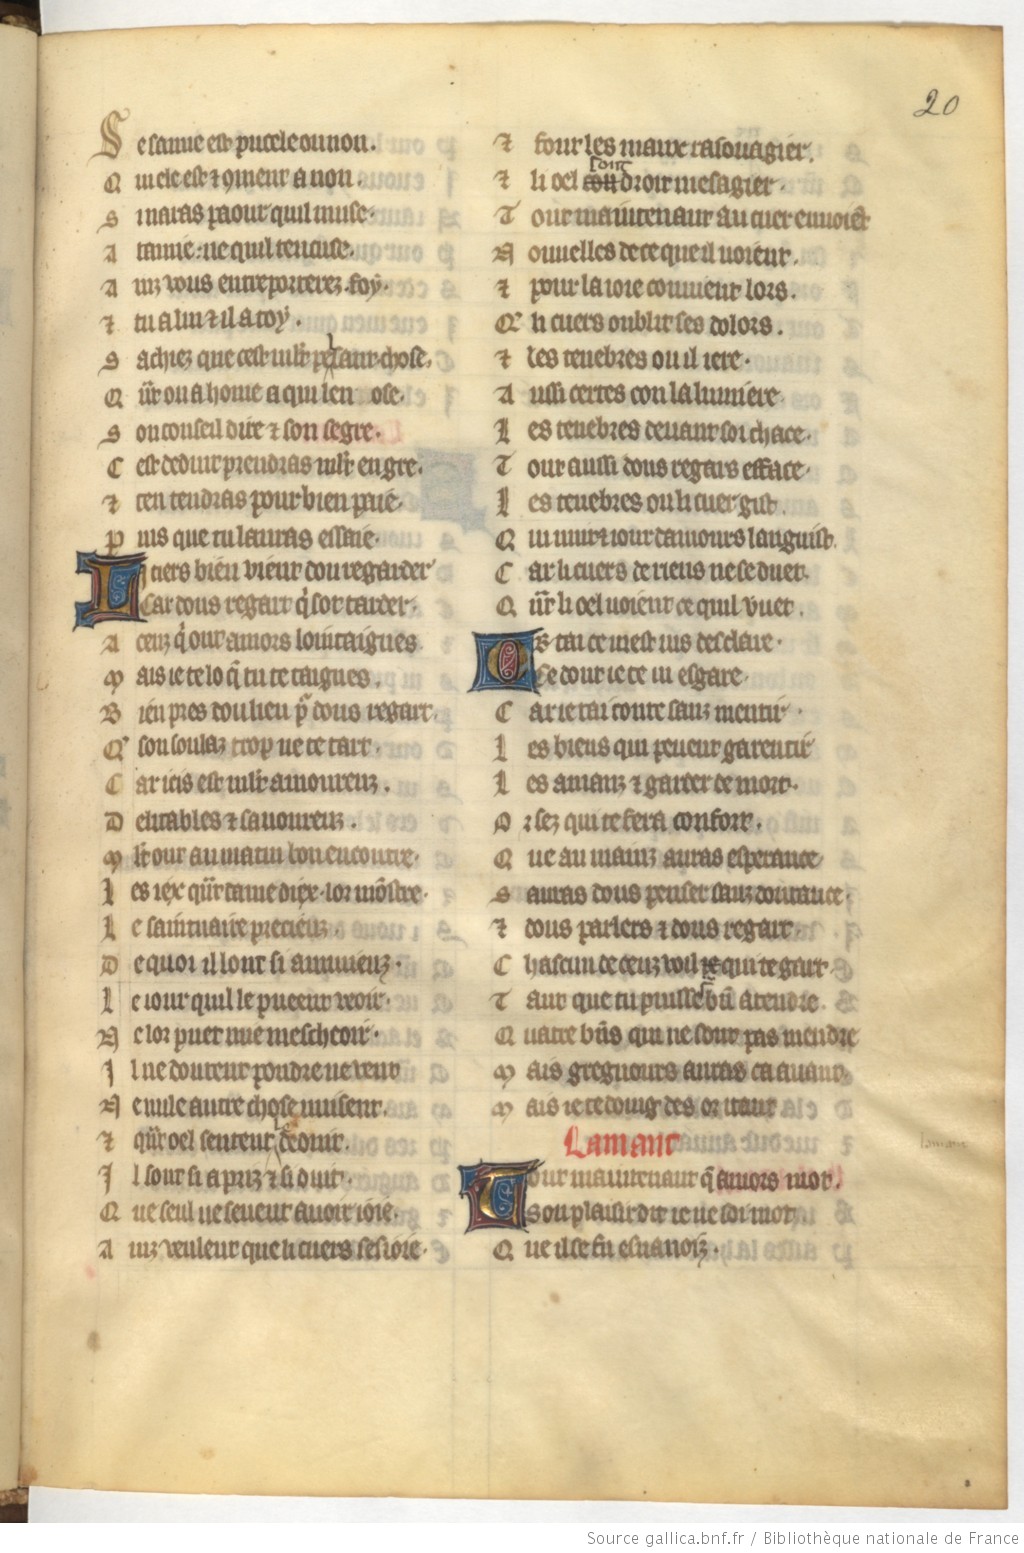 20
Se samie est pucele ou non.
Qui ele est & 9ment a non.
Si naras paour quil muse.
A tamie: ne quil tencuse.
Ainz vous entreporterez foy.
& tu a lui & il a toy.
Sachiez que cest mlt plesant chose.
Qñt on a home a qui len ose.
Son conseil dire & son segre.
Cest deduit prendras mlt en gre.
& ten tendras pour bien paie.
Puis que tu lauras essaie.
Li tiers bien vient dou regarder
Car dous regart q̃ sot tarder.
A ceuz q̃ ont amors lointaignes
Mais ie te lo q̃ tu te taignes.
Bien pres dou lieu pͬ dous regart.
Qͤ son soulaz trop ne te tart.
Car icis est mlt amoureuz.
Delitables & savoureuz.
Mlt ont au matin bon encontre.
Les iex qñt dame diex lor mõstre.
Le saintuaire precieuz.
De quoi il sont si anuieuz.
Le iour quil le pueent veoir.
Ne lor puet mie mescheoir.
Il ne doutent poudre ne vent
Ne nule autre chose nuisent.
& qñt oel sentent deduit.
Il sont si apriz & si duit.
Que seul ne sevent avoir ioie.
Ainz veulent que li cuers sesioie.
& font les maux rasouagier.
& li oel sont droit mesagier.
Tout maintenant au cuer envoient
Nouvelles de ce que il voient.
& pour la ioie convient lors.
Qͤ li cuers oublit ses dolors.
& les tenebres ou il iere.
Aussi certes con la lumiere.
Les tenebres devant soi chace.
Tout aussi dous regars efface.
Les tenebres ou li cuer gist.
Qui nuit & iour damours languist.
Car li cuers de riens ne se duet.
Qñt li oel voient ce quil vuet.
Or tai ce mest vis desclaire.
Ce dont ie te vi esgare.
Car ie tai conte sanz mentir.
Les biens qui pueent garentir
Les amanz & garder de mort.
Or sez qui te fera confort.
Que au mainz auras esperance
Sauras dous penser sanz doutance.
& dous parlers & dous regart.
Chascun de ceuz voil ie qui te gart
Tant que tu puisses bñ atendre.
Quatre bñs qui ne sont pas mendre
Mais gregnours auras ca avant.
Mais ie te doing des or itant
Lamant
lamant
Tout maintenant q̃ amors mot.
Son plaisir dit ie ne soi mot.
Que il se fu esvanoiz.
Source gallica.bnf.fr / Bibliothèque nationale de France